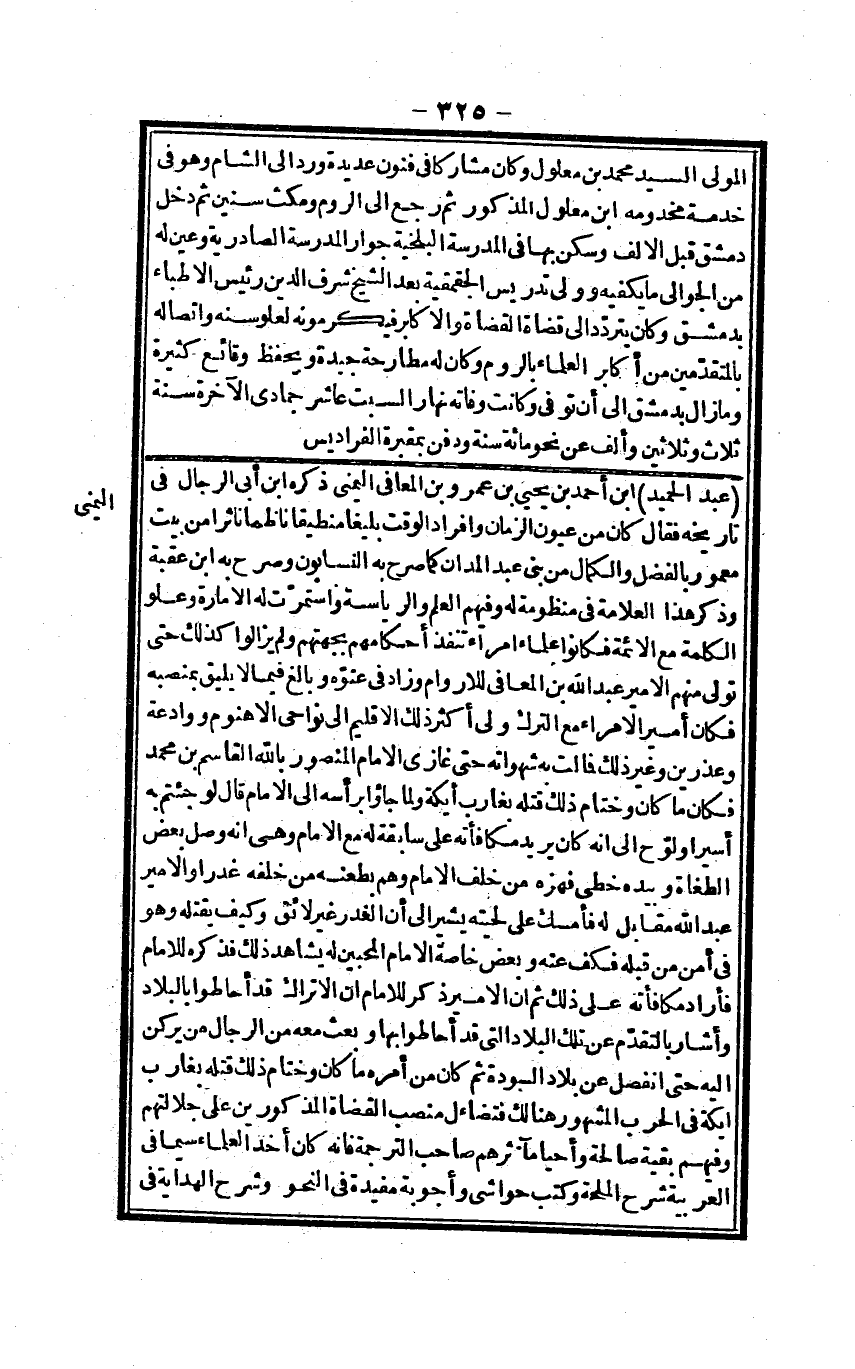 - ٣٢٥ -
المولى السيد محمد بن معلول وكان مشاركا فى فنون عديدة ورد الى الشام وهو فى
خدمة مخدومه ابن معلول المذكور ثم رجع الى الروم ومكث سنين ثم دخل
دمشق قبل الالف وسكن بها فى المدرسة البلخية جوار المدرسة الصادرية وعين له
من الجوالى ما يكفيه وولى تدريس الجقمقية بعد الشيخ شرف الدين رئيس الاطباء
بدمشق وكان يتردّد الى قضاة القضاة والاكابر فيكرمونه لعلو سنه واتصاله
بالمتقدّمين من أكابر العلماء بالروم وكان له مطارحة جيدة ويحفظ وقائع كثيرة
وما زال بدمشق الى أن توفى وكانت وفاته نهار السبت عاشر جمادى الآخرة سنة
ثلاث وثلاثين وألف عن نحو مائة سنة ودفن بمقبرة الفراديس
اليمنى
(عبد الحميد) ابن أحمد بن يحيى بن عمرو بن المعافى اليمنى ذكره ابن أبى الرجال فى
تاريخه فقال كان من عيون الزمان وافراد الوقت بليغا منطيقا ناظما ناثرا من بيت
معمور بالفضل والكمال من بنى عبد المدان كما صرح به النسابون وصرح به ابن عقبة
وذكر هذا العلامة فى منظومة له وفيهم العلم والرياسة واستمرّت له الامارة وعلو
الكلمة مع الائمة فكانوا علماء امراء تنفذ أحكامهم بجهتهم ولم يزالوا كذلك حتى
تولى منهم الامير عبد الله بن المعافى للاروام وزاد فى عتوّه وبالغ فيما لا يليق بمنصبه
فكان أمير الامراء مع الترك ولى أكثر ذلك الاقليم الى نواحى الاهنوم ووادعة
وعذرين وغير ذلك فالت به شهواته حتى غازى الامام المنصور بالله القاسم بن محمد
فكان ما كان وختام ذلك قتله بغارب أيكة ولما جاؤا برأسه الى الامام قال لو جئتم به
أسيرا ولوّح الى انه كان يريد مكافأته على سابقة له مع الامام وهى انه وصل بعض
الطغاة وبيده خطى فهزه من خلف الامام وهم بطعنه من خلفه غدرا والامير
عبد الله مقابل له فأمسك على لحيته يشير الى أن الغدر غير لائق وكيف يقتله وهو
فى أمن من قبله فكف عنه وبعض خاصة الامام المحبين له يشاهد ذلك فذكره للامام
فأراد مكافأته على ذلك ثم ان الامير ذكر للامام ان الاتراك قد أحاطوا بالبلاد
وأشار بالتقدّم عن تلك البلاد التى قد أحاطوا بها وبعث معه من الرجال من يركن
اليه حتى انفصل عن بلاد السودة ثم كان من أمره ما كان وختام ذلك قتله بغارب
ايكة فى الحرب المشهور هنالك فتضاءل منصب القضاة المذكورين على جلالتهم
وفيهم بقية صالحة وأحيا مآثرهم صاحب الترجمة فانه كان أحد العلماء سيما فى
العربية شرح الملحة وكتب حواشى وأجوبة مفيدة فى النحو وشرح الهداية فى